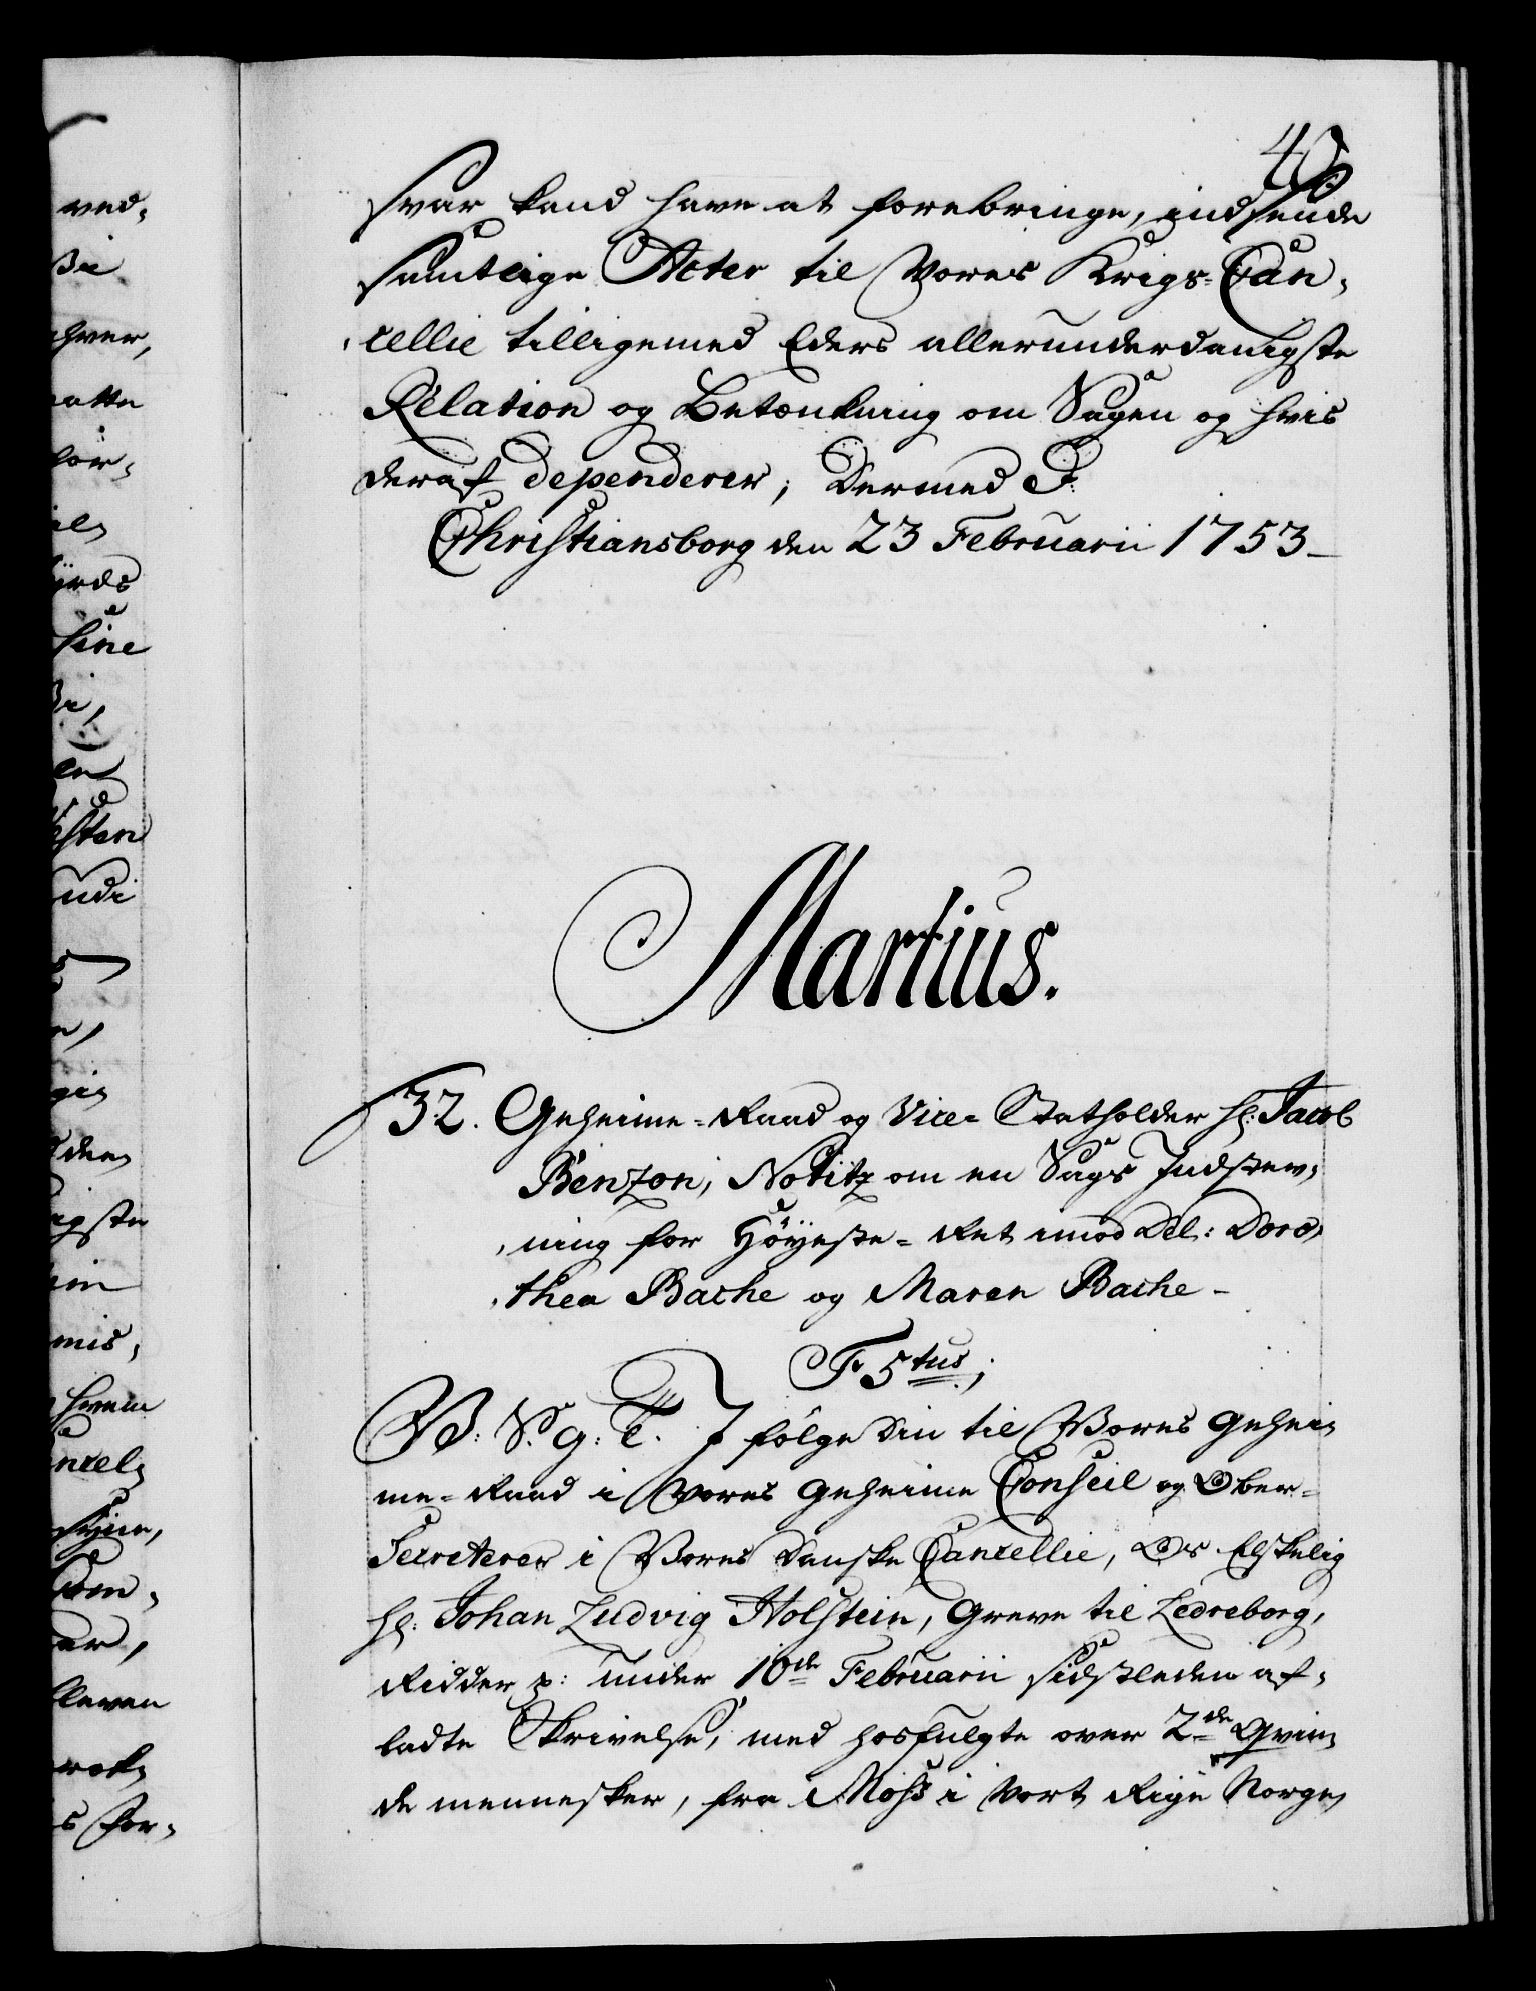 40
svar kand have at forebringe, indsende
samtlige Acter til Vores Krigs-Can-
cellie tilligemed Eders allerunderdanigste
Relation og Betænkning om Sagen og hvis
deraf dependerer; Dermed
Christiansborg den 23 Februarii 1753
Martius.
32. Geheime-Raad og Vice-Statholder Hr: Jacob
Benzon, Notitz om en Sags Indstev-
ning for Höyeste-Ret imod Del: Doro-
thea Bache og Maren Bache -
F 5tus;
V: S. g: T. I følge Din til Vores Gehei-
me-Raad i Vores Geheime Conseil og Ober-
Secreterer i Vores Danske Cancellie, Os Elskelig
Hr: Johan Ludvig Holstein, Greve til Ledreborg,
Ridder p: under 10de Februarii sidstleden af-
ladte Skrivelse, med hosfulgte over 2de Qvin-
de mennesker, fra Moss i Vort Rige Norge
ved-
hver,
atte
för-
sine
sten
den
igste
mis,
hvem
cancel-
dom-
bleven
s for-